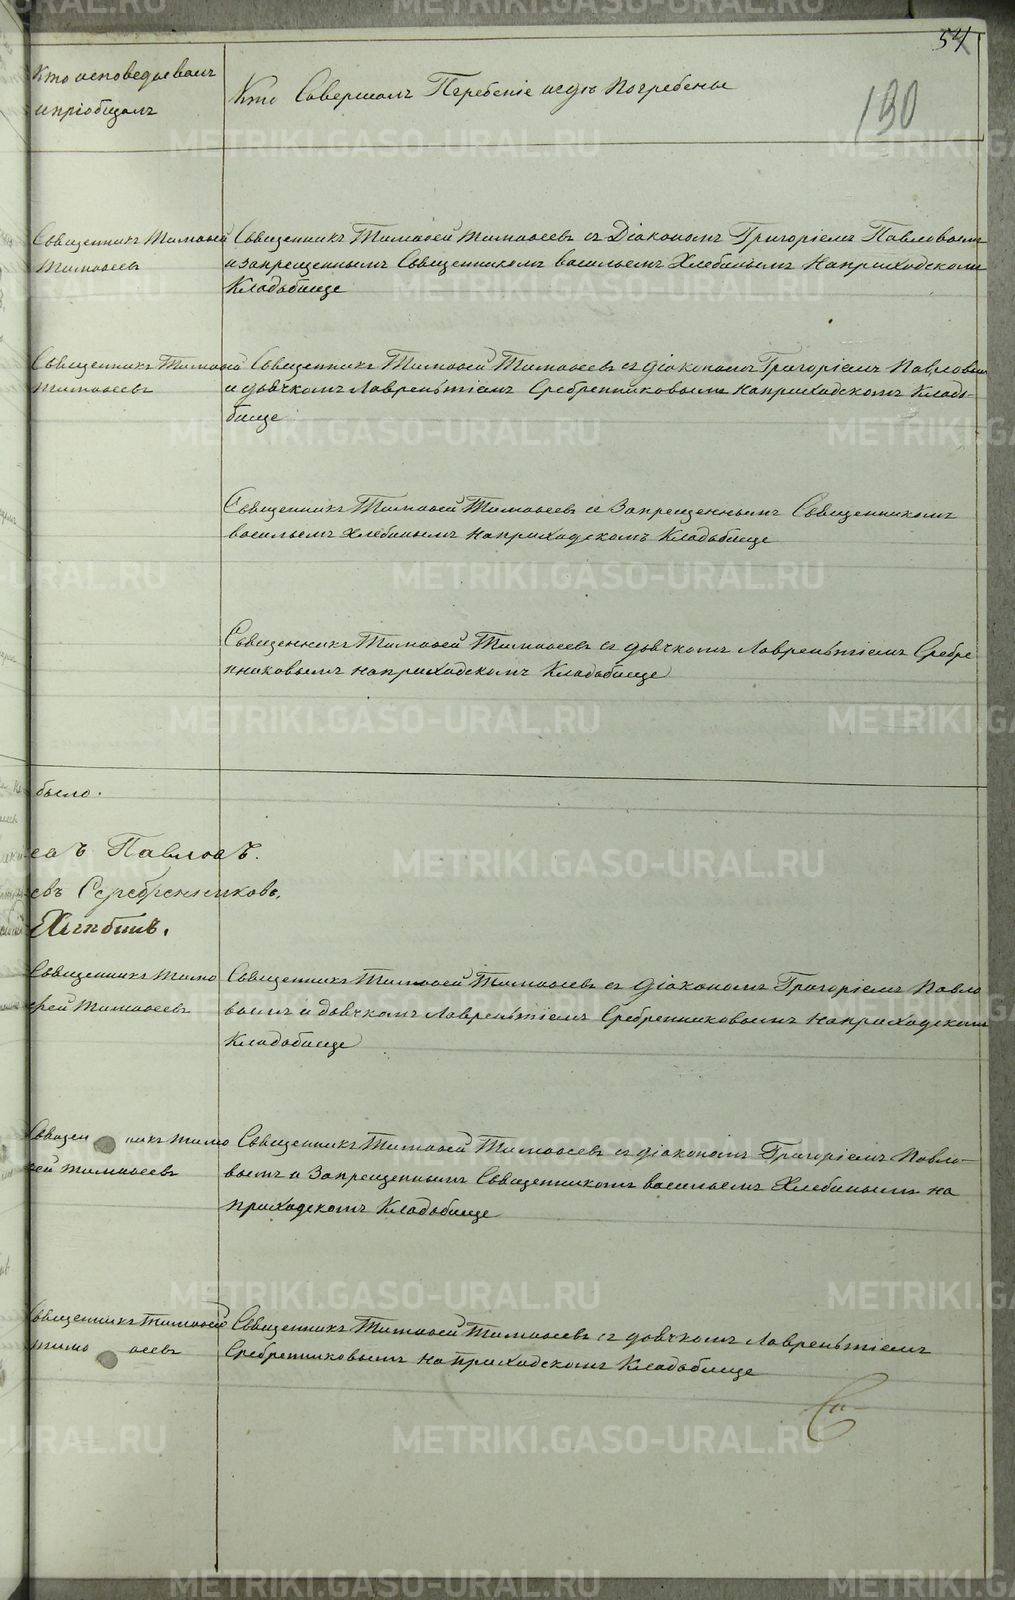 54
190
Кто исповедывалъ
и пріобщалъ
Кто Совершалъ Погребеніе и где Погребены
Священникъ Тимофей
Тимофеевъ
Священникъ Тимофей Тимофеевъ съ Діакономъ Григоріемъ Павловымъ
и запрещеннымъ Священникомъ Васильемъ Хлебинымъ на приходскомъ
Кладбище
Священникъ Тимофей
Тимофеевъ
Священникъ Тимофей Тимофеевъ съ діакономъ Григоріемъ Павловым
и дьячкомъ Лаврентіемъ Сребренниковымъ на приходскомъ Кладь-
бище
Священникъ Тимофей Тимофеевъ съ Запрещеннымъ Священникомъ
Васильемъ Хлебинымъ на приходскомъ Кладьбище
Священникъ Тимофей Тимофеевъ съ дьячкомъ Лаврентіемъ Сребре
нниковымъ на приходскомъ Кладьбище
было.
Павловъ.
евъ Серебренниковъ,
Хлебинъ.
Священникъ Тимо
фей Тимофеевъ
Священникъ Тимофей Тимофеевъ съ діакономъ Григоріемъ Павло
вымъ и дьячкомъ Лаврентіемъ Сребренниковымъ на приходскомъ
Кладьбище
Священникъ Тимо
фей Тимофеевъ
Священникъ Тимофей Тимофеевъ съ діакономъ Григоріемъ Павло-
вымъ и Запрещеннымъ Священникомъ Васильемъ Хлебинымъ на
приходскомъ Кладьбище
Священникъ Тимофей
Тимофеевъ
Священникъ Тимофей Тимофеевъ съ дьячкомъ Лаврентіемъ
Сребренниковымъ на приходскомъ Кладьбище
METRIKI.GASO-URAL.RU